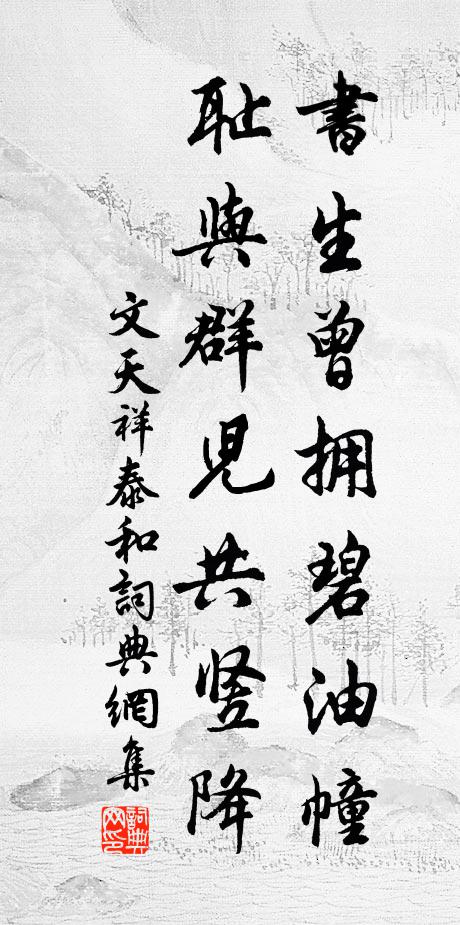 書生曾擁碧油幢
耻與群児共竖降
文天祥泰和詞典網集
詞典网印